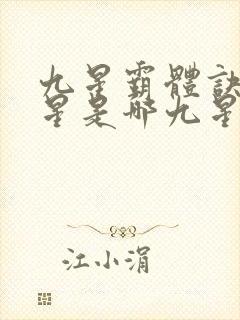 九星霸體訣
星是哪九星
江小涓